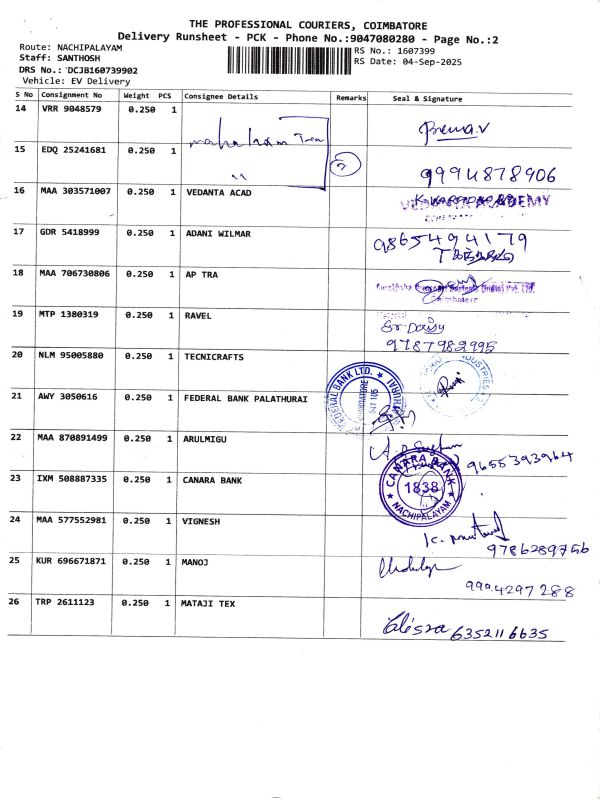 THE PROFESSIONAL COURIERS, COIMBATORE
Delivery Runsheet - PCK - Phone No.:9047080280 - Page No.:2
Route: NACHIPALAYAM
Staff: SANTHOSH
DRS No.: DCJB160739902
Vehicle: EV Delivery
RS No.: 1607399
RS Date: 04-Sep-2025
S No Consignment No Weight PCS Consignee Details Remarks Seal & Signature
14 VRR 9048579 0.250 1 Prema.V
15 EDQ 25241681 0.250 1 " 2 9994878906
16 MAA 303571007 0.250 1 VEDANTA ACAD ACADEMY
17 GDR 5418999 0.250 1 ADANI WILMAR 9865494179
18 MAA 706730806 0.250 1 AP TRA Pvt. Ltd.
Coimbatore
19 MTP 1380319 0.250 1 RAVEL Sr Daisy
9787982995
20 NLM 95005880 0.250 1 TECNICRAFTS INDUSTRIES
21 AWY 3050616 0.250 1 FEDERAL BANK PALATHURAI FEDERAL BANK LTD. COIMBATORE
22 MAA 870891499 0.250 1 ARULMIGU 9655393964
23 IXM 508887335 0.250 1 CANARA BANK CANARA BANK 1838 NACHIPALAYAM
24 MAA 577552981 0.250 1 VIGNESH 9786289756
25 KUR 696671871 0.250 1 MANOJ 9994297288
26 TRP 2611123 0.250 1 MATAJI TEX 6352116635